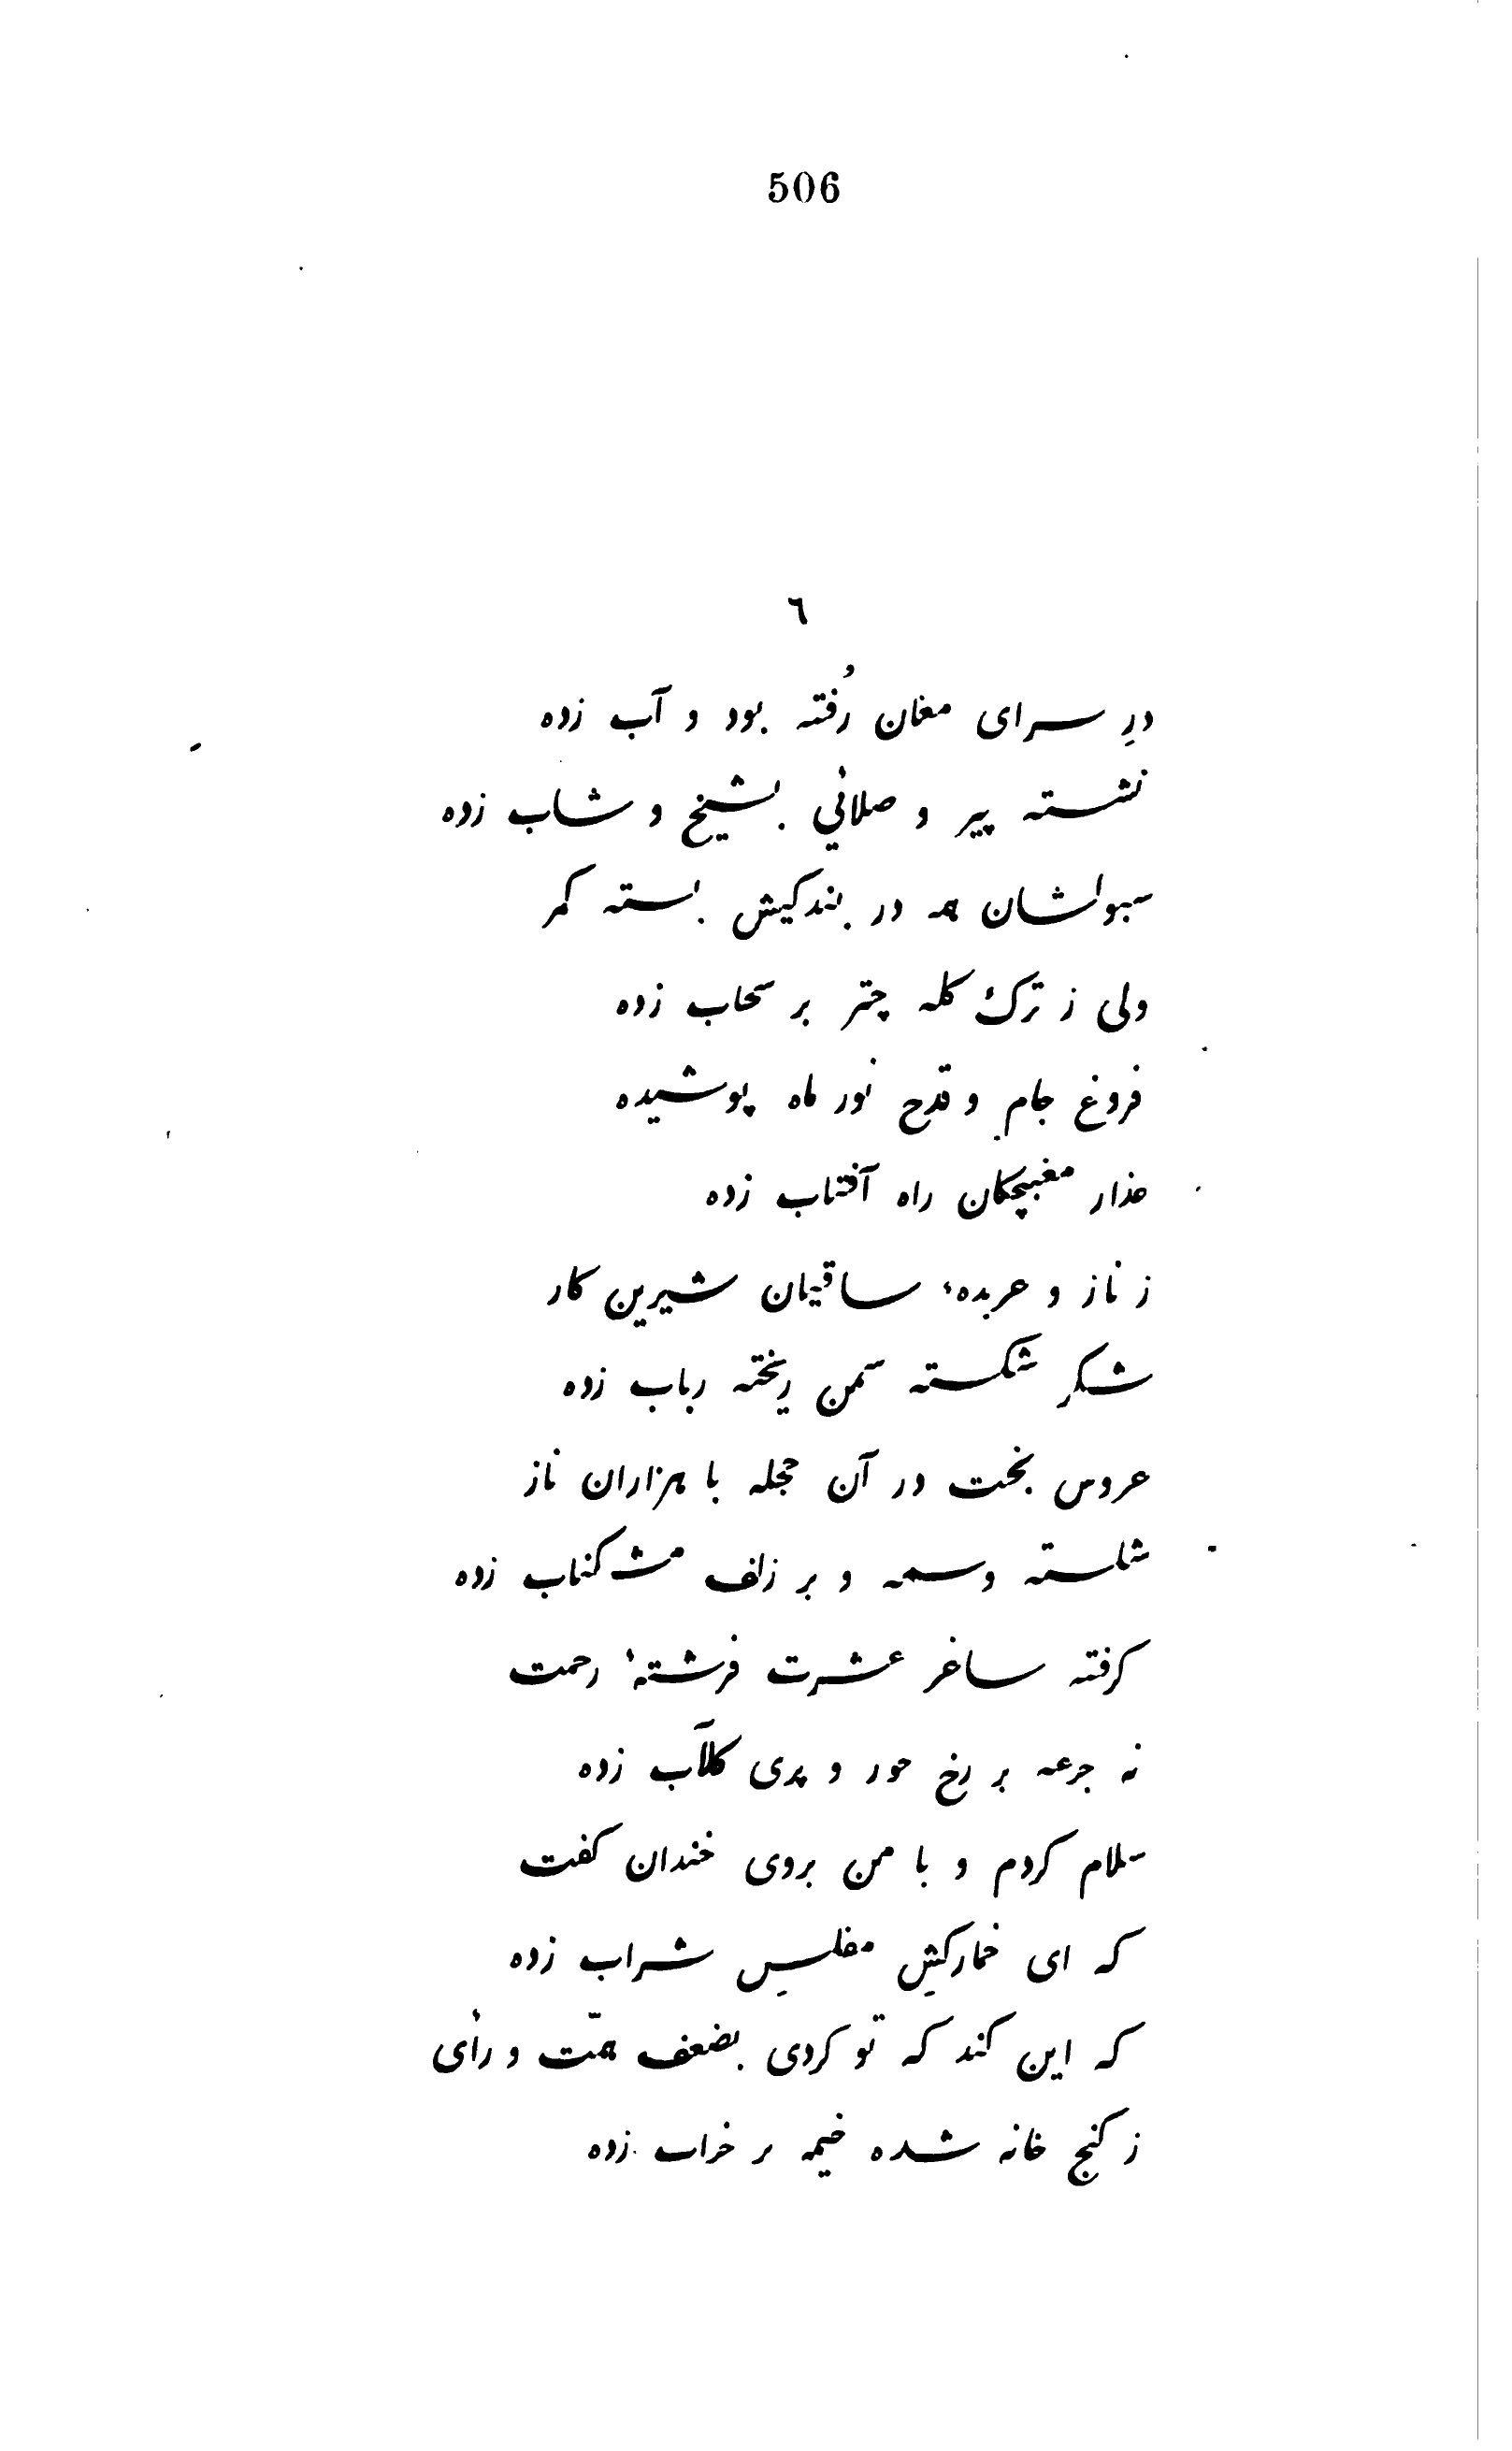 506
٦
درِ سرای مغان رُفته بود و آب زده
نشسته پیر و صلائي بشیخ و شاب زده
سبوکشان همه در بندکیش بسته کمر
ولی ز ترک کله چتر بر سحاب زده
فروغ جام و قدح نور ماه پوشیده
عذار مغبچکان راه آفتاب زده
ز ناز و عربدهء ساقیان شیرین کار
شکر شکسته سمن ریخته رباب زده
عروس بخت در آن حجله با هزاران ناز
شکسته وسمه و بر زلف مشکناب زده
کرفته ساغر عشرت فرشتهٔ رحمت
نه جرعه بر رخ حور و پری کلآب زده
سلام کردم و با من بروی خندان کفت
که ای خمارکشِ مفلسِ شراب زده
که این کند که تو کردی بضعف همّت و رأی
ز کنج خانه شده خیمه بر خراب زده